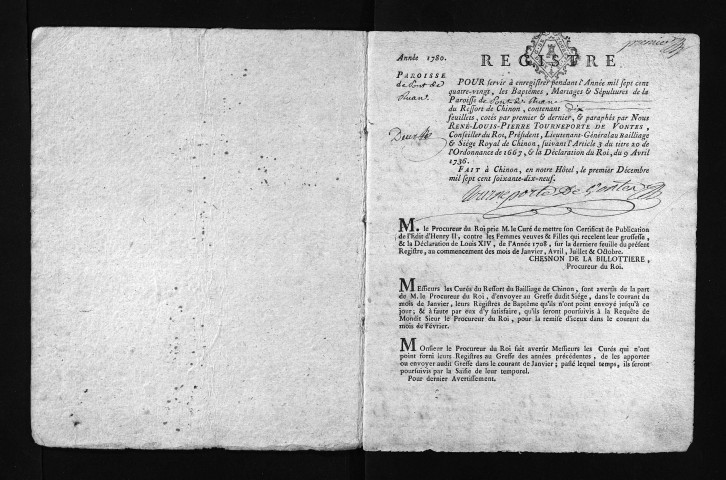 premier
Année 1780.
REGISTRE
PAROISSE
de Pont de
Ruan
POUR servir à enregistrer pendant l'Année mil sept cent
quatre-vingt, les Baptêmes, Mariages & Sépultures de la
Paroisse de Pont de Ruan
du Ressort de Chinon, contenant dix
feuillets, cotés par premier & dernier, & paraphés par Nous
RENÉ-LOUIS-PIERRE TOURNEPORTE DE VONTES,
Conseiller du Roi, Président, Lieutenant-Général au Bailliage
& Siége Royal de Chinon, suivant l'Article 3 du titre 20 de
l'Ordonnance de 1667, & la Déclaration du Roi, du 9 Avril
1736.
FAIT à Chinon, en notre Hôtel, le premier Décembre
mil sept cent soixante-dix-neuf.
Tourneporte De Vontes
M. le Procureur du Roi prie M. le Curé de mettre son Certificat de Publication
de l'Edit d'Henry II, contre les Femmes veuves & Filles qui recelent leur grossesse,
& la Déclaration de Louis XIV, de l'Année 1708, sur la derniere feuille du présent
Registre, au commencement des mois de Janvier, Avril, Juillet & Octobre.
CHESNON DE LA BILLOTTIERE,
Procureur du Roi.
MEssieurs les Curés du Ressort du Bailliage de Chinon, sont avertis de la part
de M. le Procureur du Roi, d'envoyer au Greffe dudit Siége, dans le courant du
mois de Janvier, leurs Registres de Baptême qu'ils n'ont point envoyé jusqu'à ce
jour; & à faute par eux d'y satisfaire, qu'ils seront poursuivis à la Requête de
Mondit Sieur le Procureur du Roi, pour la remise d'iceux dans le courant du
mois de Février.
MOnsieur le Procureur du Roi fait avertir Messieurs les Curés qui n'ont
point forni leurs Registres au Greffe des années précédentes, de les apporter
ou envoyer audit Greffe dans le courant de Janvier; passé lequel temps, ils seront
poursuivis par la Saisie de leur temporel.
Pour dernier Avertissement.